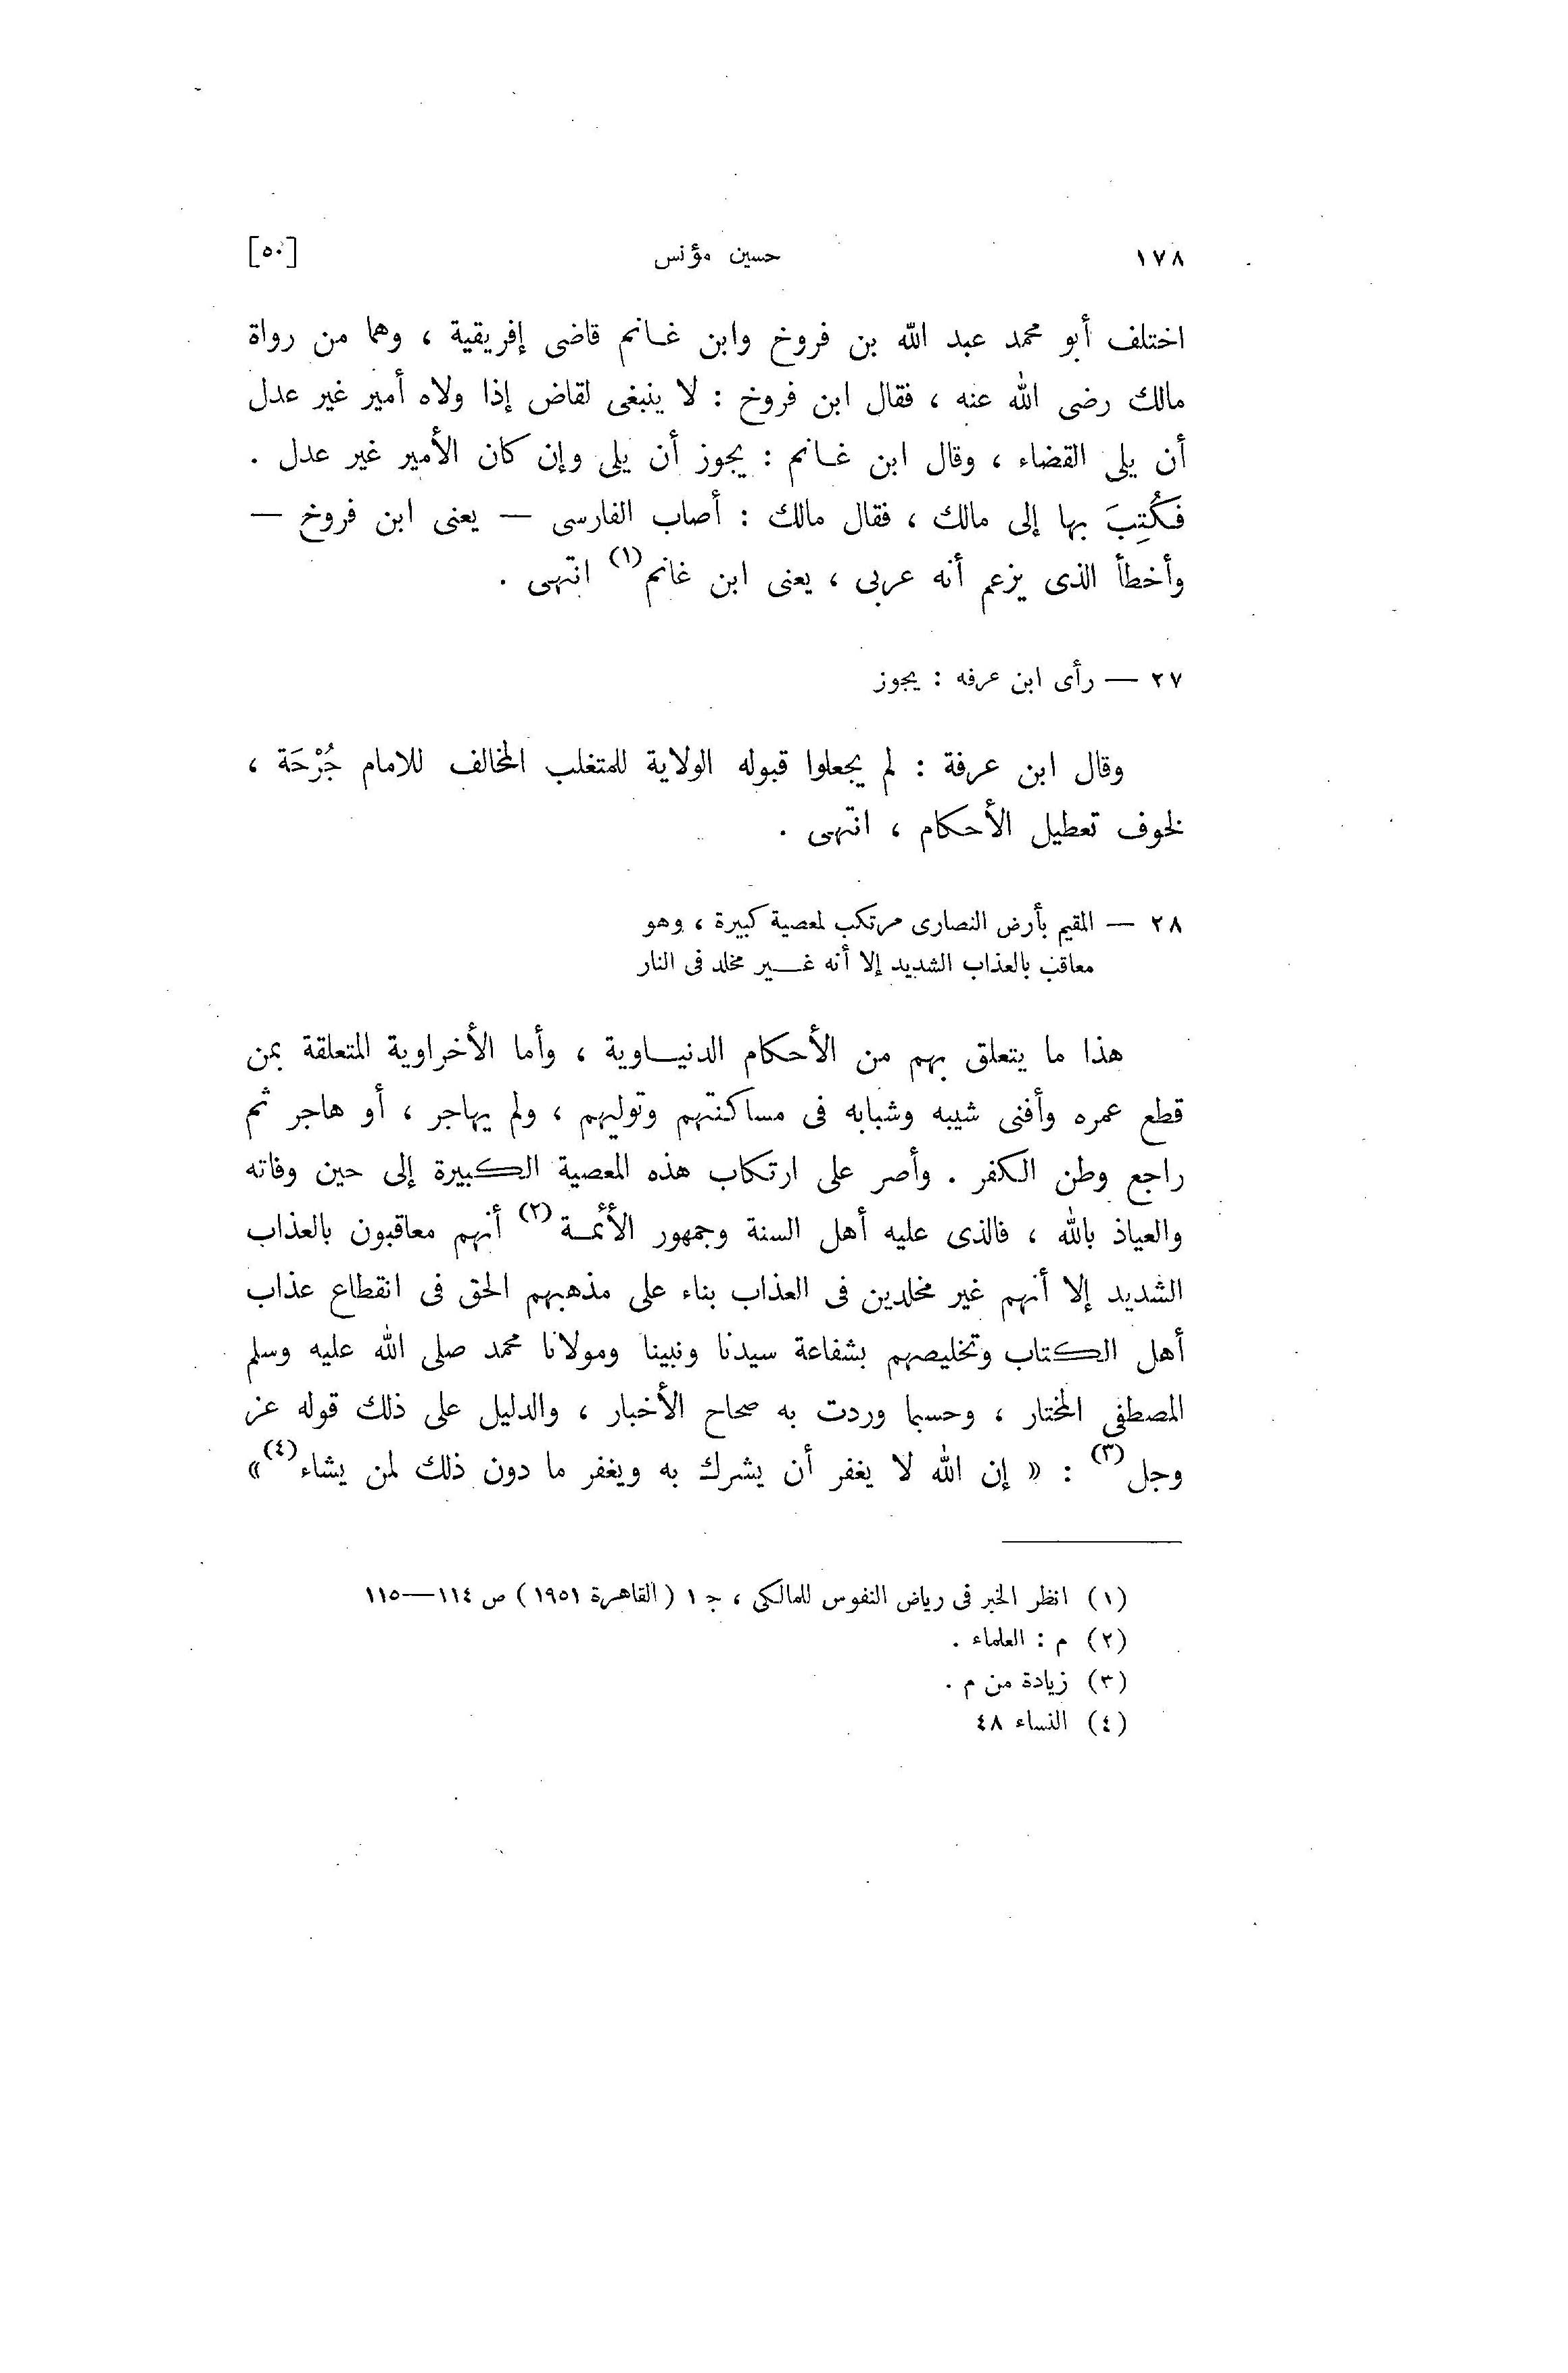 ١٧٨ حسين مؤنس [٥٠]
اختلف أبو محمد عبد الله بن فروخ وابن غانم قاضى إفريقية ، وهما من رواة
مالك رضى الله عنه ، فقال ابن فروخ : لا ينبغى لقاض إذا ولاه أمير غير عدل
أن يلى القضاء ، وقال ابن غانم : يجوز أن يلى وإن كان الأمير غير عدل .
فَكُتِبَ بها إلى مالك ، فقال مالك : أصاب الفارسى — يعنى ابن فروخ —
وأخطأ الذى يزعم أنه عربى ، يعنى ابن غانم(١) انتهى .
٢٧ — رأى ابن عرفه : يجوز
وقال ابن عرفة : لم يجعلوا قبوله الولاية للمتغلب المخالف للامام جُرْحَة ،
لخوف تعطيل الأحكام ، انتهى .
٢٨ — المقيم بأرض النصارى مرتكب لمعصية كبيرة ، وهو
معاقب بالعذاب الشديد إلا أنه غير مخلد فى النار
هذا ما يتعلق بهم من الأحكام الدنياوية ، وأما الأخراوية المتعلقة بمن
قطع عمره وأفنى شيبه وشبابه فى مساكنتهم وتوليهم ، ولم يهاجر ، أو هاجر ثم
راجع وطن الكفر . وأصر على ارتكاب هذه المعصية الكبيرة إلى حين وفاته
والعياذ بالله ، فالذى عليه أهل السنة وجمهور الأئمة(٢) أنهم معاقبون بالعذاب
الشديد إلا أنهم غير مخلدين فى العذاب بناء على مذهبهم الحق فى انقطاع عذاب
أهل الكتاب وتخليصهم بشفاعة سيدنا ونبينا ومولانا محمد صلى الله عليه وسلم
المصطفى المختار ، وحسبما وردت به صحاح الأخبار ، والدليل على ذلك قوله عز
وجل(٣) : « إن الله لا يغفر أن يشرك به ويغفر ما دون ذلك لمن يشاء(٤) »
(١) انظر الخبر فى رياض النفوس للمالكى ، ج ١ ( القاهرة ١٩٥١ ) ص ١١٤—١١٥
(٢) م : العلماء .
(٣) زيادة من م .
(٤) النساء ٤٨